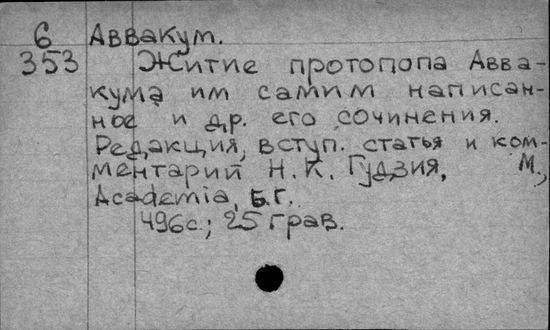 6 Аввакум.
353 Житие протопопа Авва-
кума им самим написан-
ное и др. его сочинения.
Редакция, вступ. статья и ком-
ментарий Н. К. Гудзия, М.,
Academia, б.г.
496с.; 25 грав.